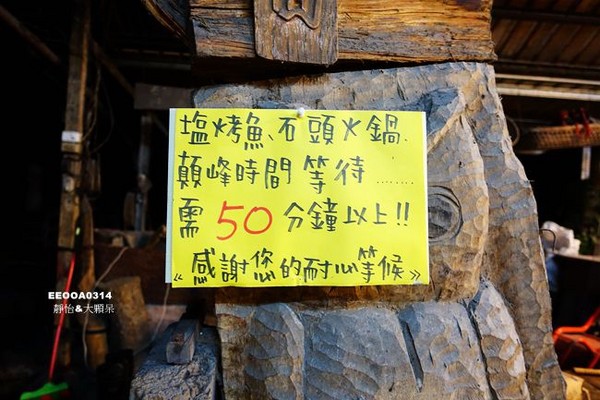 塩烤魚、石頭火鍋.
顛峰時間 等待 ........
需 50 分鐘以上!!
《感謝您的耐心等候》
EEOOA0314
靜怡&大顆呆